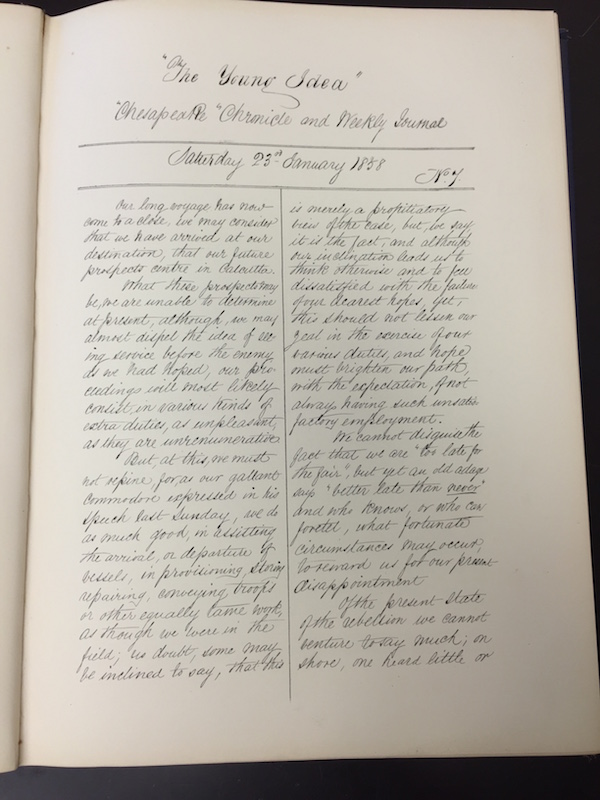 "The Young Idea"
"Chesapeake" Chronicle and Weekly Journal
Saturday 23rd January 1858
No 7
Our long voyage has now
come to a close, we may consider
that we have arrived at our
destination, that our future
prospects centre in Calcutta.
What these prospects may
be, we are unable to determine
at present, although, we may
almost dispel the idea of see-
ing service before the enemy,
as we had hoped, our pro-
ceedings will most likely
consist in various kinds of
extra duties, as unpleasant,
as they are unremunerative
But, at this, we must
not repine, for, as our gallant
Commodore expressed in his
speech last Sunday, we do
as much good, in assisting
the arrival, or departure of
vessels, in provisioning storing
repairing, conveying troops
or other equally tame work,
as though we were in the
field; no doubt, some may
be inclined to say, that this
is merely a propitiatory
view of the case, but, we say
it is the fact, and although
our inclination leads us to
think otherwise and to feel
dissatisfied with the failure
of our dearest hopes, yet,
this should not lessen our
zeal in the exercise of our
various duties, and hope
must brighten our path,
with the expectation, of not
always having such unsatis-
factory employment.
We cannot disguise the
fact that we are "too late for
the fair", but yet an old adage
says "better late than never"
and who knows, or who can
foretel, what fortunate
circumstances may occur,
to reward us for our present
disappointment
Of the present state
of the rebellion we cannot
venture to say much; on
shore, one heard little or